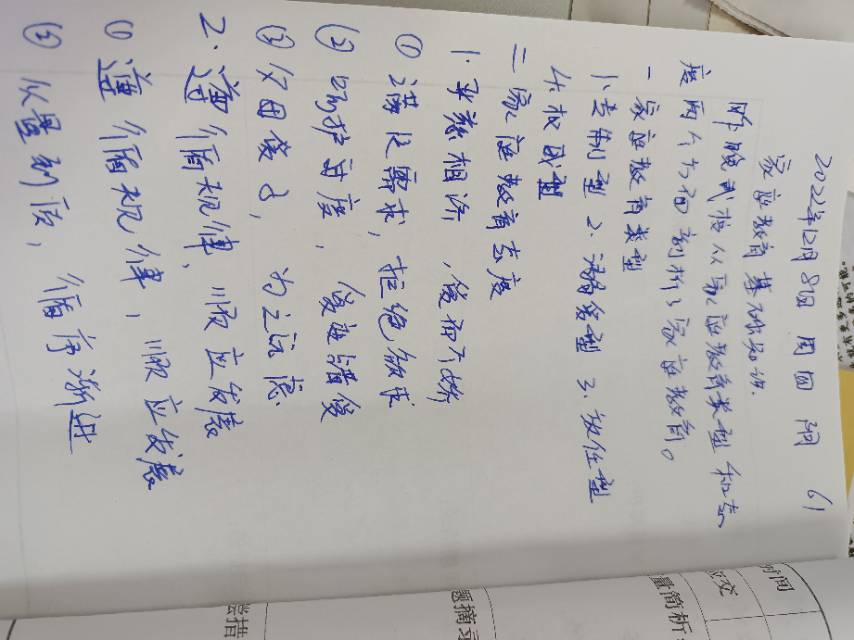 2022年12月8日 周四 阴 61
家庭教育基础知识.
昨晚我校从家庭教育类型和态
度两个方面剖析了家庭教育。
一 家庭教育类型
1.专制型 2.溺爱型 3.放任型
4.权威型
二 家庭教育态度
1.严慈相济,爱而不娇
① 满足需求,拒绝欲求
② 呵护过度,爱过错爱
③ 父母爱子,为之计虑
2.遵循规律,顺应发展
① 遵循规律,顺应发展
② 从量到质,循序渐进
时间
应交
量简析
题摘录
偿措